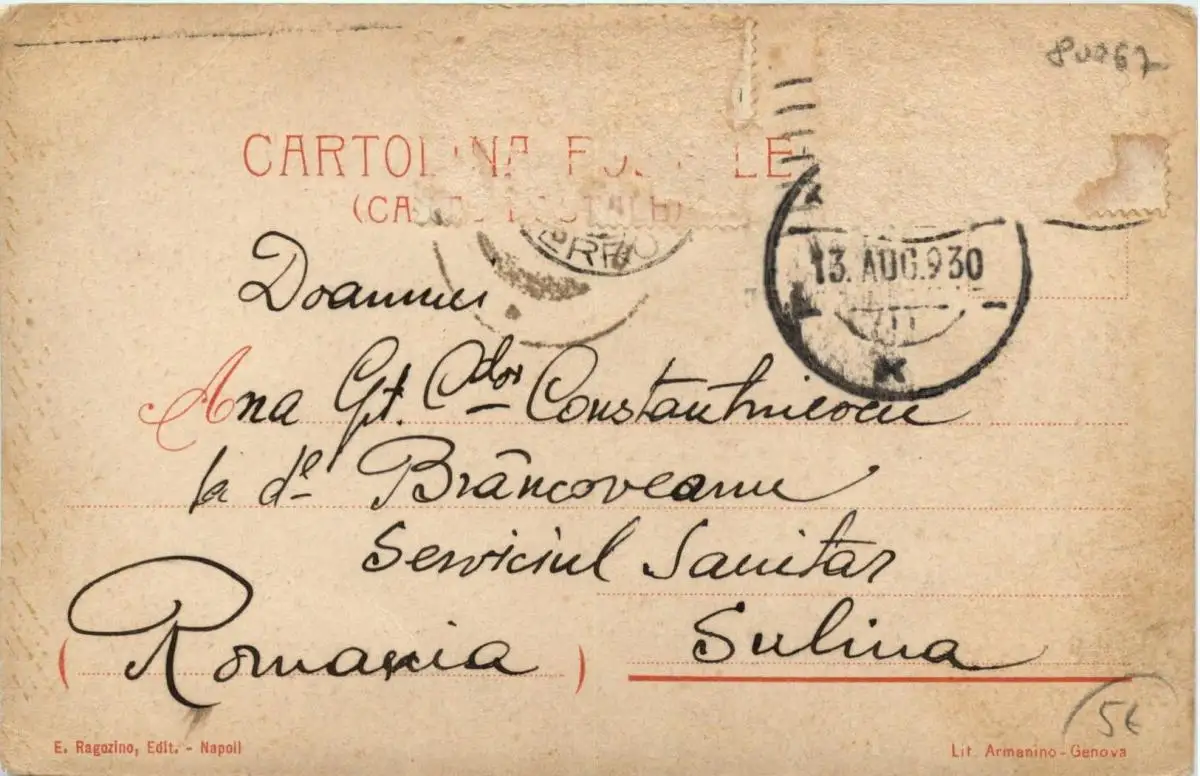 CARTOLINA POSTALE
13. AUG. 930
Doamnei
Ana Gt. Cdor Constantinescu
la dl Brâncoveanu
Serviciul Sanitar
Sulina
(Romania)
E. Ragozino, Edit. - Napoli
Lit. Armanino-Genova
5€